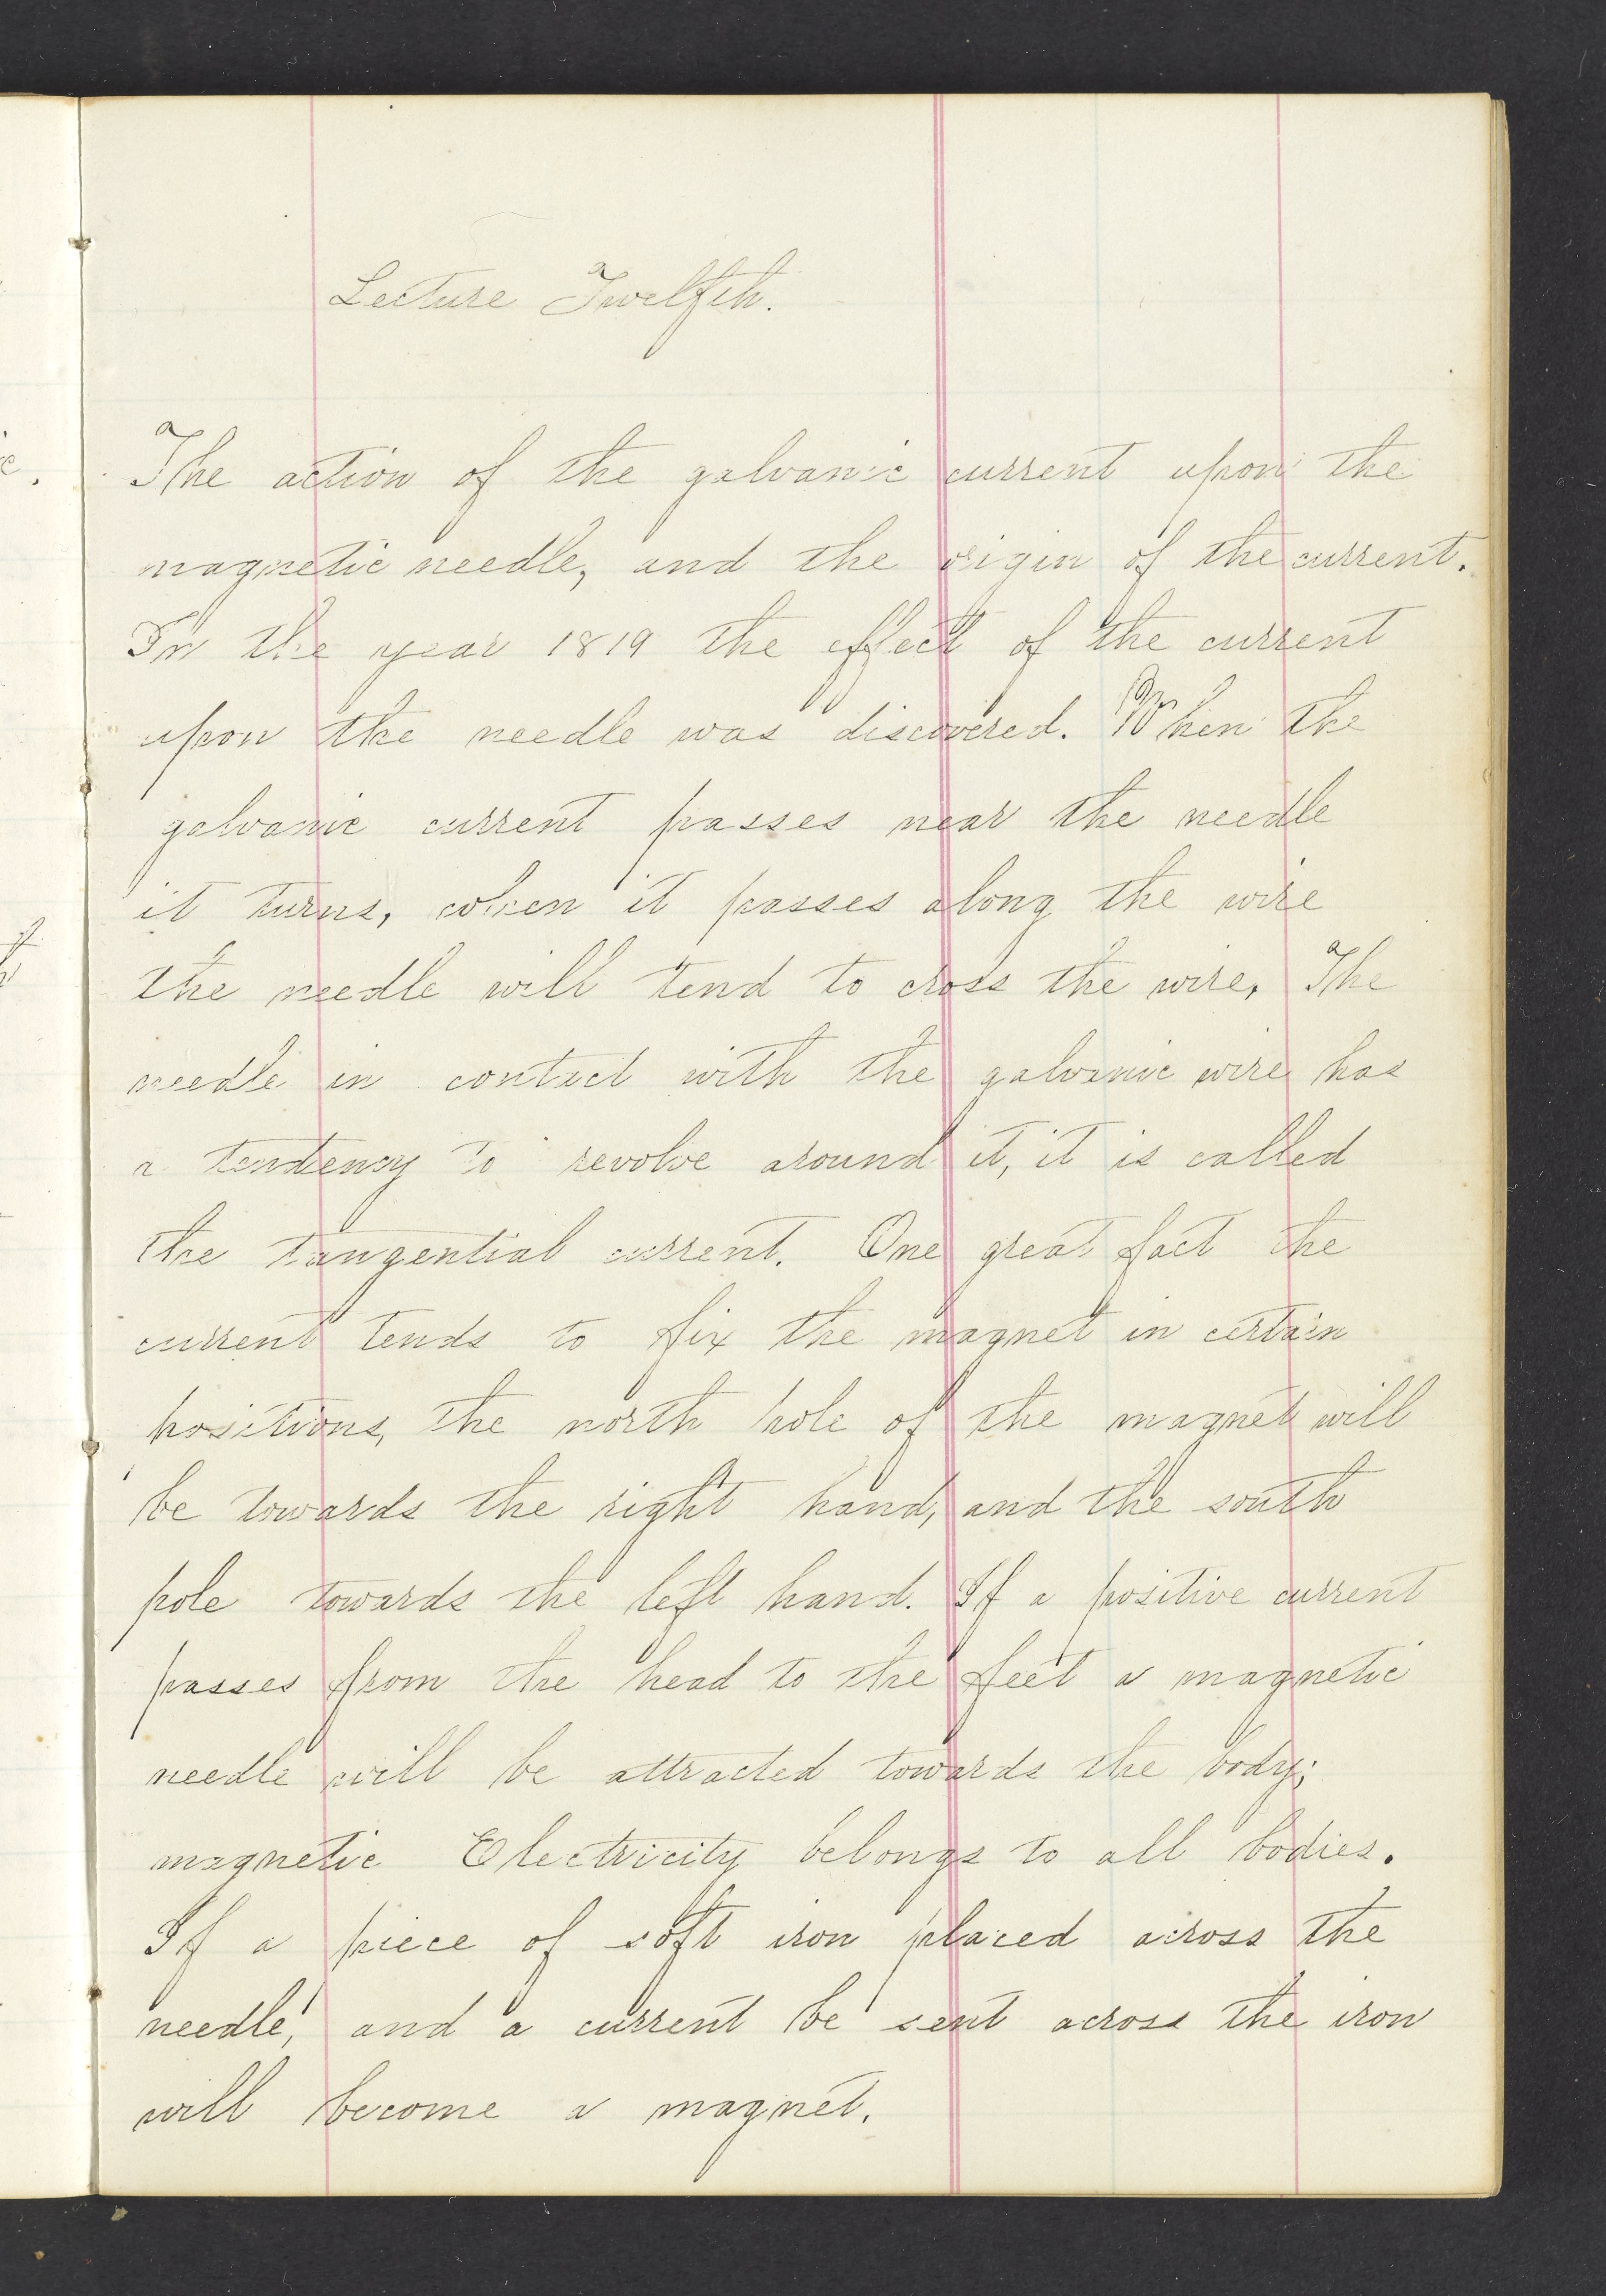 Lecture Twelfth.
The action of the galvanic current upon the
magnetic needle, and the origin of the current.
In the year 1819 the effect of the current
upon the needle was discovered. When the
galvanic current passes near the needle
it turns, when it passes along the wire
the needle will tend to cross the wire, The
needle in contact with the galvanic wire has
a tendency to revolve around it, it is called
the tangential current. One great fact the
current tends to fix the magnet in certain
positions, the north pole of the magnet will
be towards the right hand, and the south
pole towards the left hand. If a positive current
passes from the head to the feet a magnetic
needle will be attracted towards the body;
magnetic Electricity belongs to all bodies.
If a piece of soft iron placed across the
needle, and a current be sent across the iron
will become a magnet.